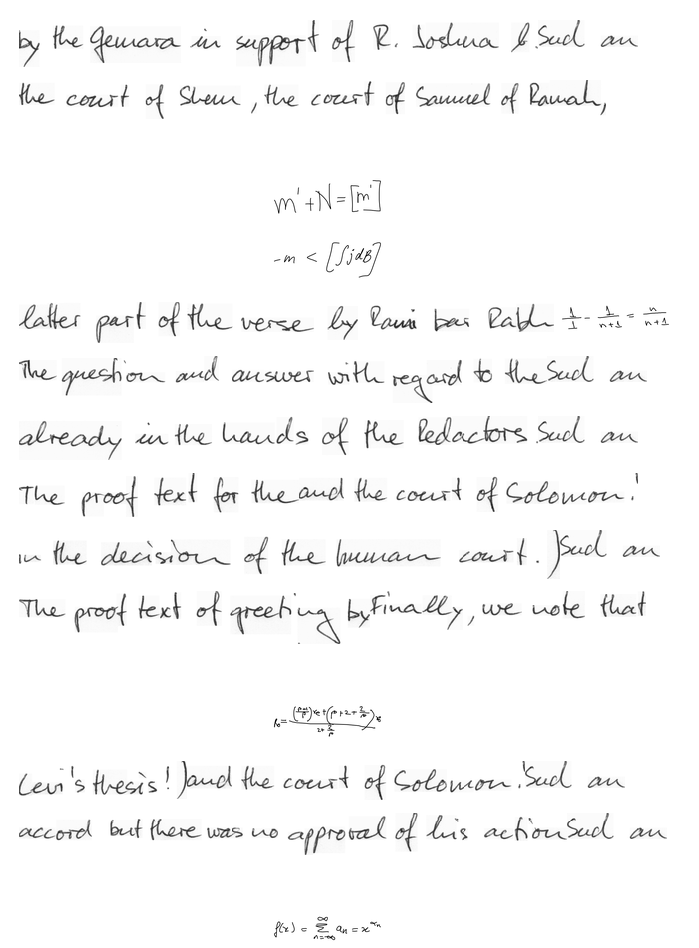 by the Gemara in support of R. Joshua b. Sud an
the court of Shem, the court of Samuel of Ramah,
m' + N = [m']
-m < [∫jdB]
latter part of the verse by Rami bar Rabh 1/1 - 1/(n+1) = n/(n+1)
The question and answer with regard to the Sud an
already in the hands of the Redactors. Sud an
The proof text for the and the court of Solomon!'
in the decision of the human court.) Sud an
The proof text of greeting by Finally, we note that
Levi's thesis!) and the court of Solomon!' Sud an
accord but there was no approval of his action Sud an
f(x) = ∑_{n=-∞}^{∞} a_n = x^{}